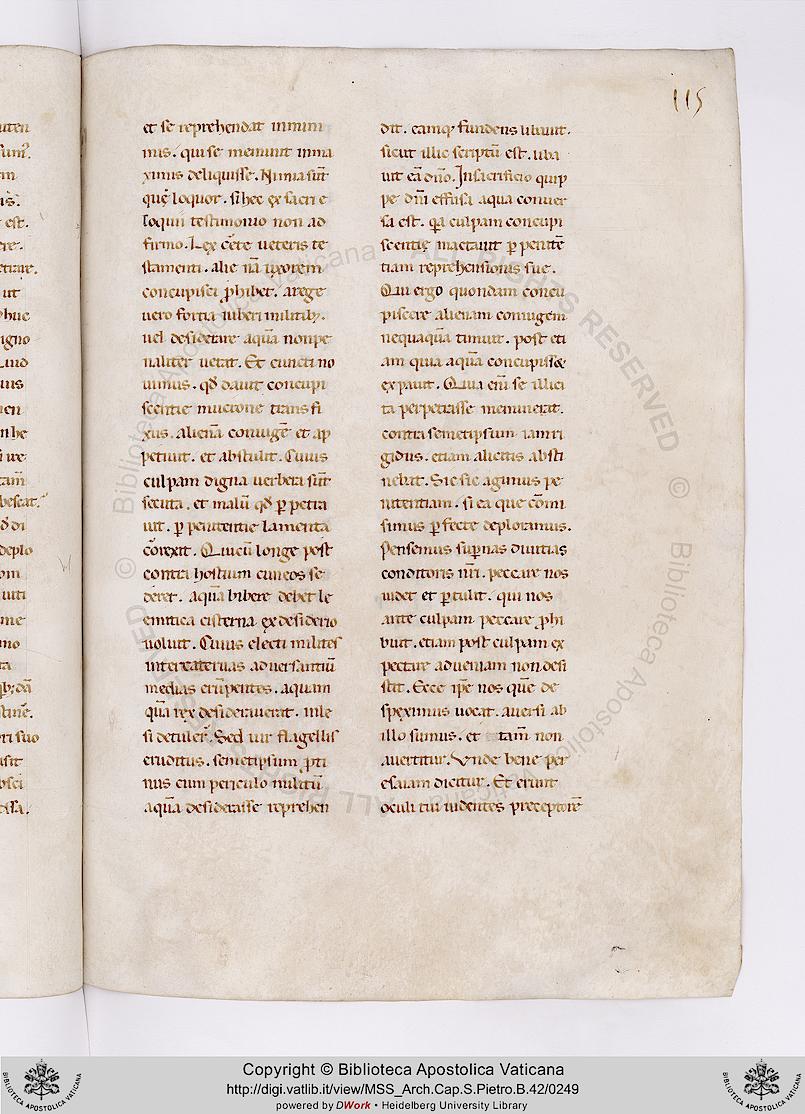 115
et se reprehendat in mini
mis. qui se meminit inma
ximis deliquisse. Nimia sūt
quę loquor. si hec ex sacri e
loquii testimonio non ad
firmo. Lex c̄te ueteris te
stamenti. alienā uxorem
concupisci ꝓhibet. a rege
uero fortia iuberi militibꝫ.
uel desiderare aquā non pe
naliter uetat. Et cuncti no
uimus. qđ dauit concupi
scentie mucrone transfi
xus. alienā coniugē et ap
petiuit. et abstulit. Cuius
culpam digna uerbera sūt
secuta. et malū qđ ꝑpetra
uit. ꝑ penitentie lamenta
cōrexit. Qui cū longe post
contra hostium cuneos se
deret. aquā bibere debethle
emitica cisterna ex desiderio
uoluit. Cuius electi milites
inter cateruas aduersantiū
medias erūpentes. aquam
quā rex desiderauerat. inle
si detuler̄. Sed uir flagellis
eruditus. semetipsum ꝓti
nus cum periculo militū
aquā desiderasse reprehen
dit. eamqꝫ fundens libauit.
sicut illic scriptū est. liba
uit eā dn̄o. In sacrificio quip
pe dn̄i effusa aqua conuer
sa est. qa culpam concupi
scentię mactauit ꝑ peniten̄
tiam reprehensionis sue.
Qui ergo quondam concu
piscere alienam coniugem
nequaquā timuit. post eti
am quia aquā concupiss&
expauit. Quia eni se illici
ta perpetrasse meminerat.
contra semetipsum iam ri
gidus. etiam a licitis absti
nebat. Sic sic agimus pe
nitentiam. si ea que cōmi
simus ꝑfecte deploramus.
Pensemus suꝑnas diuitias
conditoris nr̄i. peccare nos
uidet et ꝑtulit. qui nos
ante culpam peccare ꝓhi
buit. etiam post culpam ex
pectare ad ueniam non desi
stit. Ecce ip̄e nos quē de
speximus uocat. auersi ab
illo sumus. et tam̄ non
auertitur. Vnde bene per
esaiam dicitur. Et erunt
oculi tui uidentes preceptorē
© Biblioteca Apostolica Vaticana ALL RIGHTS RESERVED
Copyright © Biblioteca Apostolica Vaticana
http://digi.vatlib.it/view/MSS_Arch.Cap.S.Pietro.B.42/0249
powered by DWork • Heidelberg University Library
BIBLIOTECA APOSTOLICA VATICANA
BIBLIOTECA APOSTOLICA VATICANA